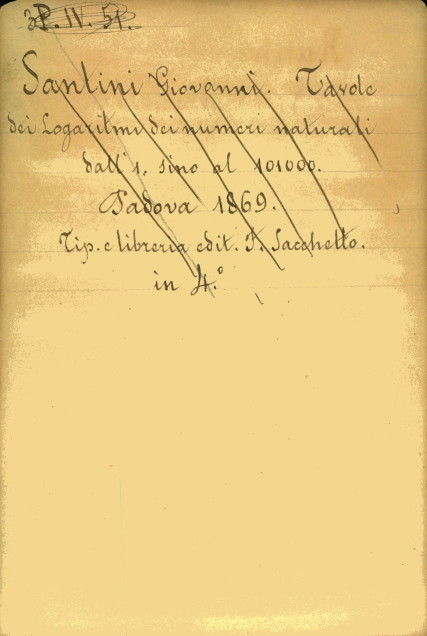 3P. IV. 51.
Santini Giovanni. Tavole
dei Logaritmi dei numeri naturali
dall'1. sino al 101000.
Padova 1869.
Tip. e libreria edit. F. Sacchetto.
in 4.º